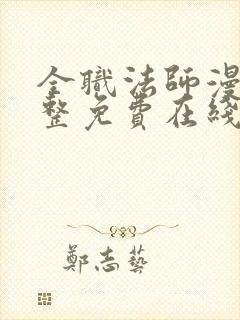 全職法師漫
整免費在綫
鄭志藝